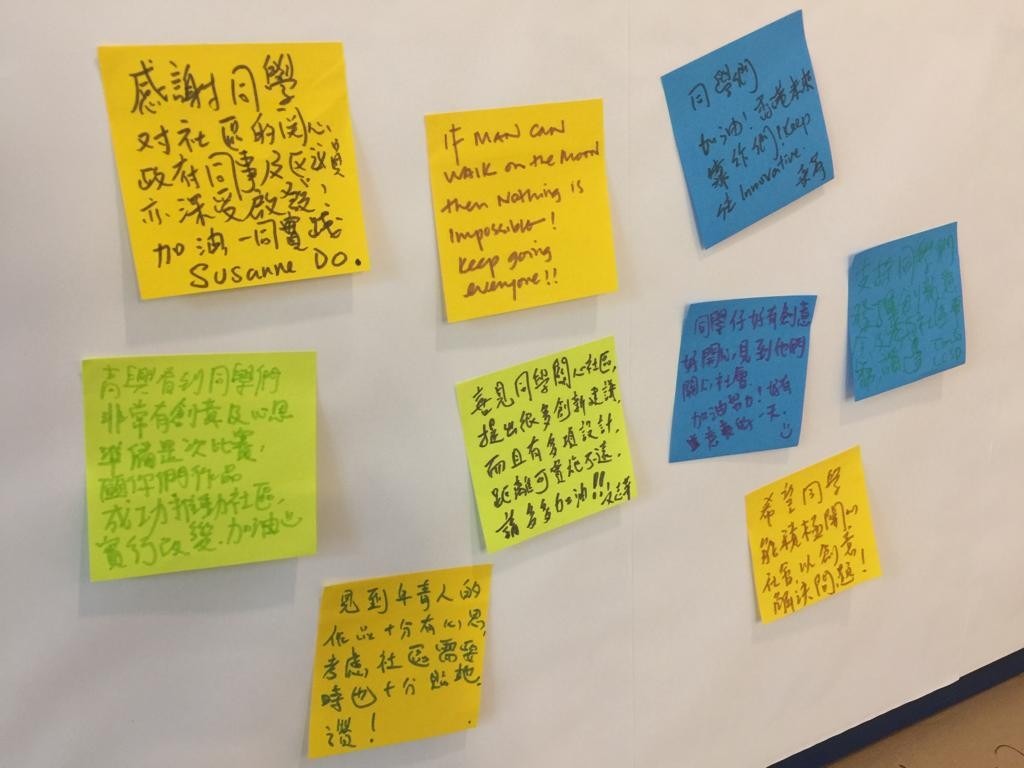 感謝同學
对社區的関心,
政府同事及区議員
亦深受啟發,
加油一同實踐
Susanne Do.
IF MAN CAN
WALK on the MOON
then Nothing is
Impossible!
keep going
everyone!!
同學們
加油! 香港未來
靠你們! Keep
住 Innovative.
高興看到同學們
非常有創意及心思
準備是次比賽,
願你們作品
成功推動社區,
實行改變.加油
喜見同學関心社區,
提出很多創新建議,
而且有多項設計,
距離可實施不遠,
請多多加油!!
同學仔好有創意
好開心見到他們
關心社會.
加油努力! 好有
意義的一天.
支持同學們
發揮創新意
LCSD
見到年青人的
作品十分有心思,
考慮社區需要
時也十分貼地.
讚!
希望同學
能積極関心
社會,以創意
解決問題!